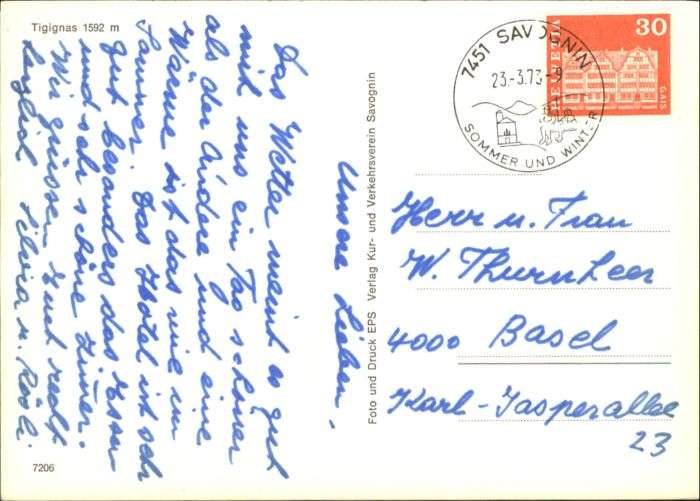 Tigignas 1592 m
Unsere Lieben,
Das Wetter meint es gut
mit uns ein Tag schöner
als der Andere und eine
Wärme ist das wie im
Sommer. Das Hotel ist sehr
gut besonders das Essen
und sehr schöne Zimmer.
Wir grüssen Euch recht
herzlich Silvia u. Röbi.
7206
Foto und Druck EPS Verlag Kur- und Verkehrsverein Savognin
7451 SAVOGNIN
23.-3.73-9
SOMMER UND WINTER
HELVETIA
30
GAIS
Herr u. Frau
W. Thurnheer
4000 Basel
Karl-Jasperallee
23